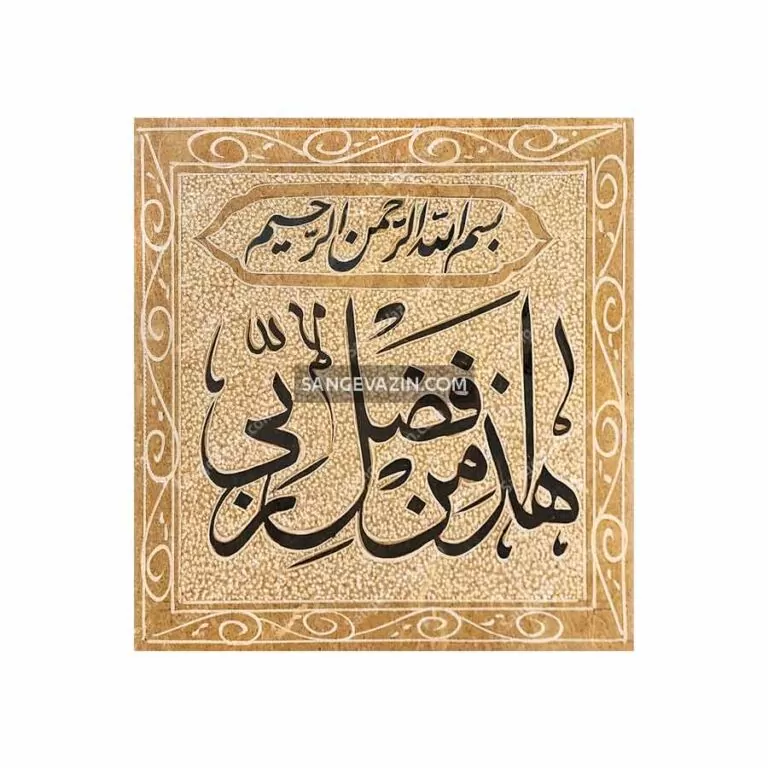 بسم الله الرحمن الرحيم
هذا من فضل ربي
SANGEVAZIN.COM